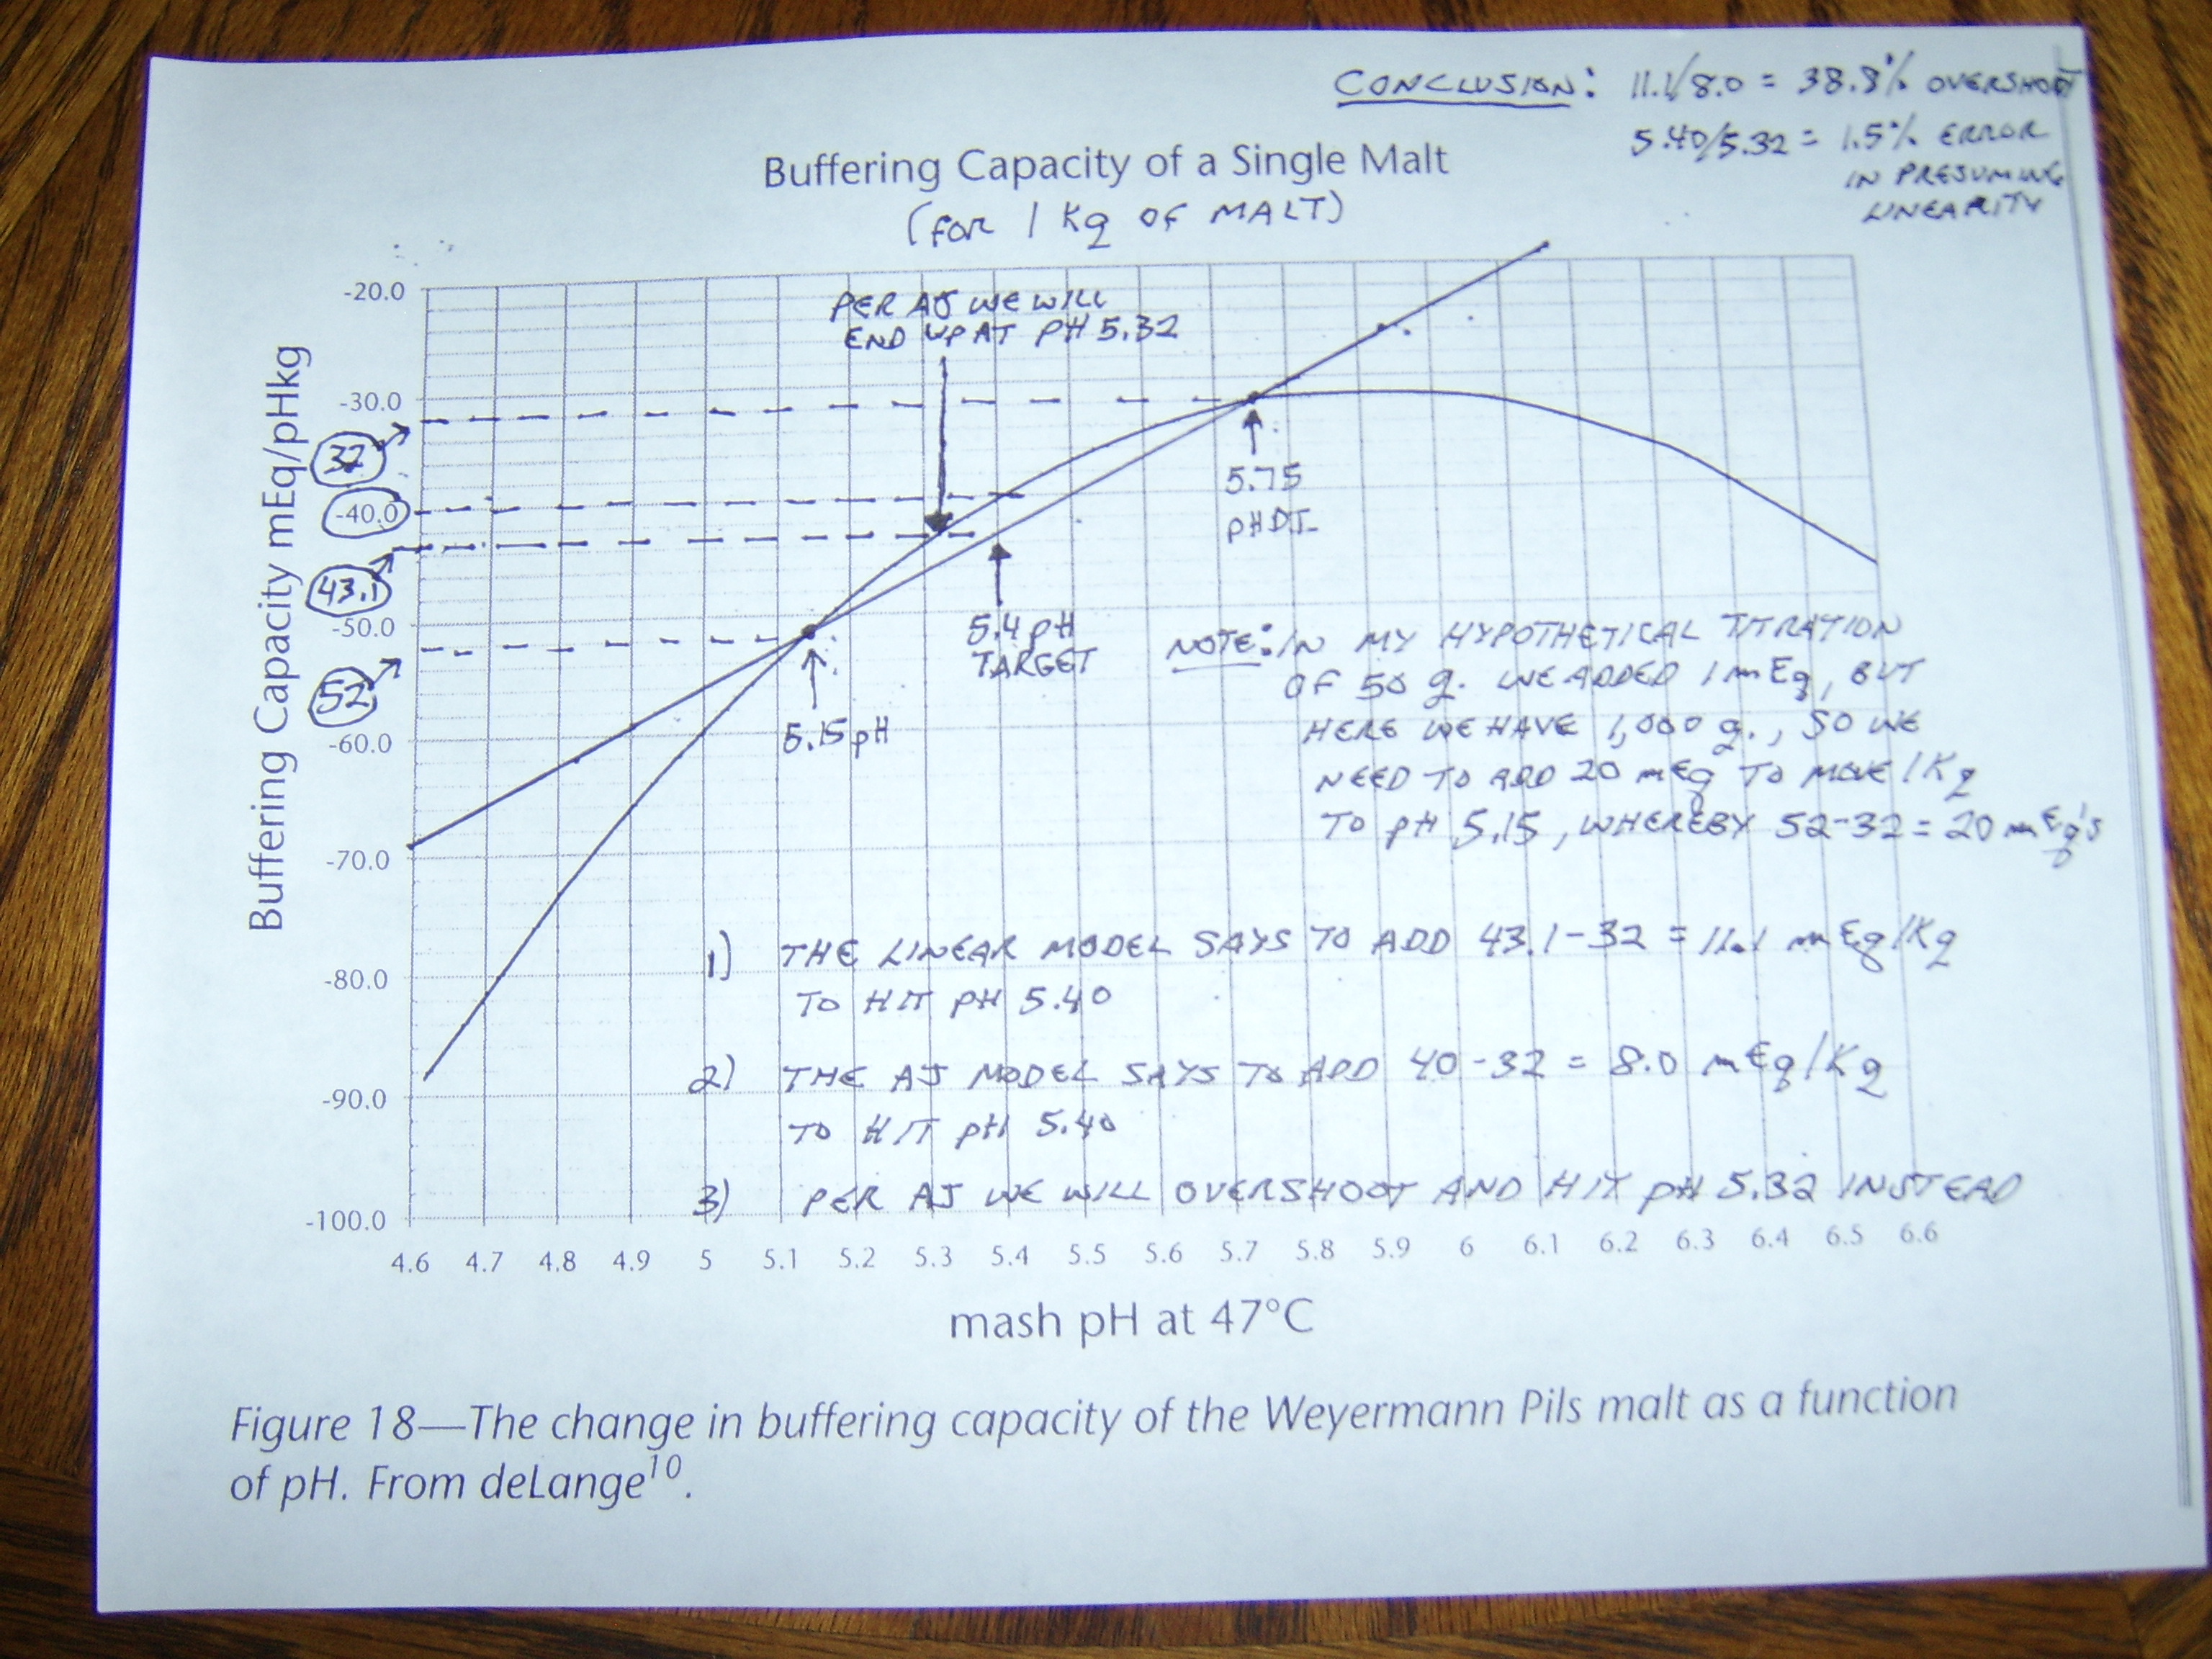 CONCLUSION: 11.1/8.0 = 38.8% OVERSHOOT
5.40/5.32 = 1.5% ERROR
IN PRESUMING
LINEARITY
Buffering Capacity of a Single Malt
(FOR 1 Kg OF MALT)
Buffering Capacity mEq/pHkg
-20.0
-30.0
-40.0
-50.0
-60.0
-70.0
-80.0
-90.0
-100.0
32
43.1
52
PER AJ WE WILL
END UP AT PH 5.32
5.75
PHDI
5.4 PH
TARGET
5.15 pH
NOTE: IN MY HYPOTHETICAL TITRATION
OF 50 g. WE ADDED 1 mEq, BUT
HERE WE HAVE 1,000 g., SO WE
NEED TO ADD 20 mEq TO MOVE 1 Kg
TO pH 5.15, WHEREBY 52-32 = 20 mEq's
1) THE LINEAR MODEL SAYS TO ADD 43.1-32 = 11.1 mEq/Kg
TO HIT PH 5.40
2) THE AJ MODEL SAYS TO ADD 40-32 = 8.0 mEq/Kg
TO HIT pH 5.40
3) PER AJ WE WILL OVERSHOOT AND HIT pH 5.32 INSTEAD
4.6 4.7 4.8 4.9 5 5.1 5.2 5.3 5.4 5.5 5.6 5.7 5.8 5.9 6 6.1 6.2 6.3 6.4 6.5 6.6
mash pH at 47°C
Figure 18—The change in buffering capacity of the Weyermann Pils malt as a function
of pH. From deLange10.